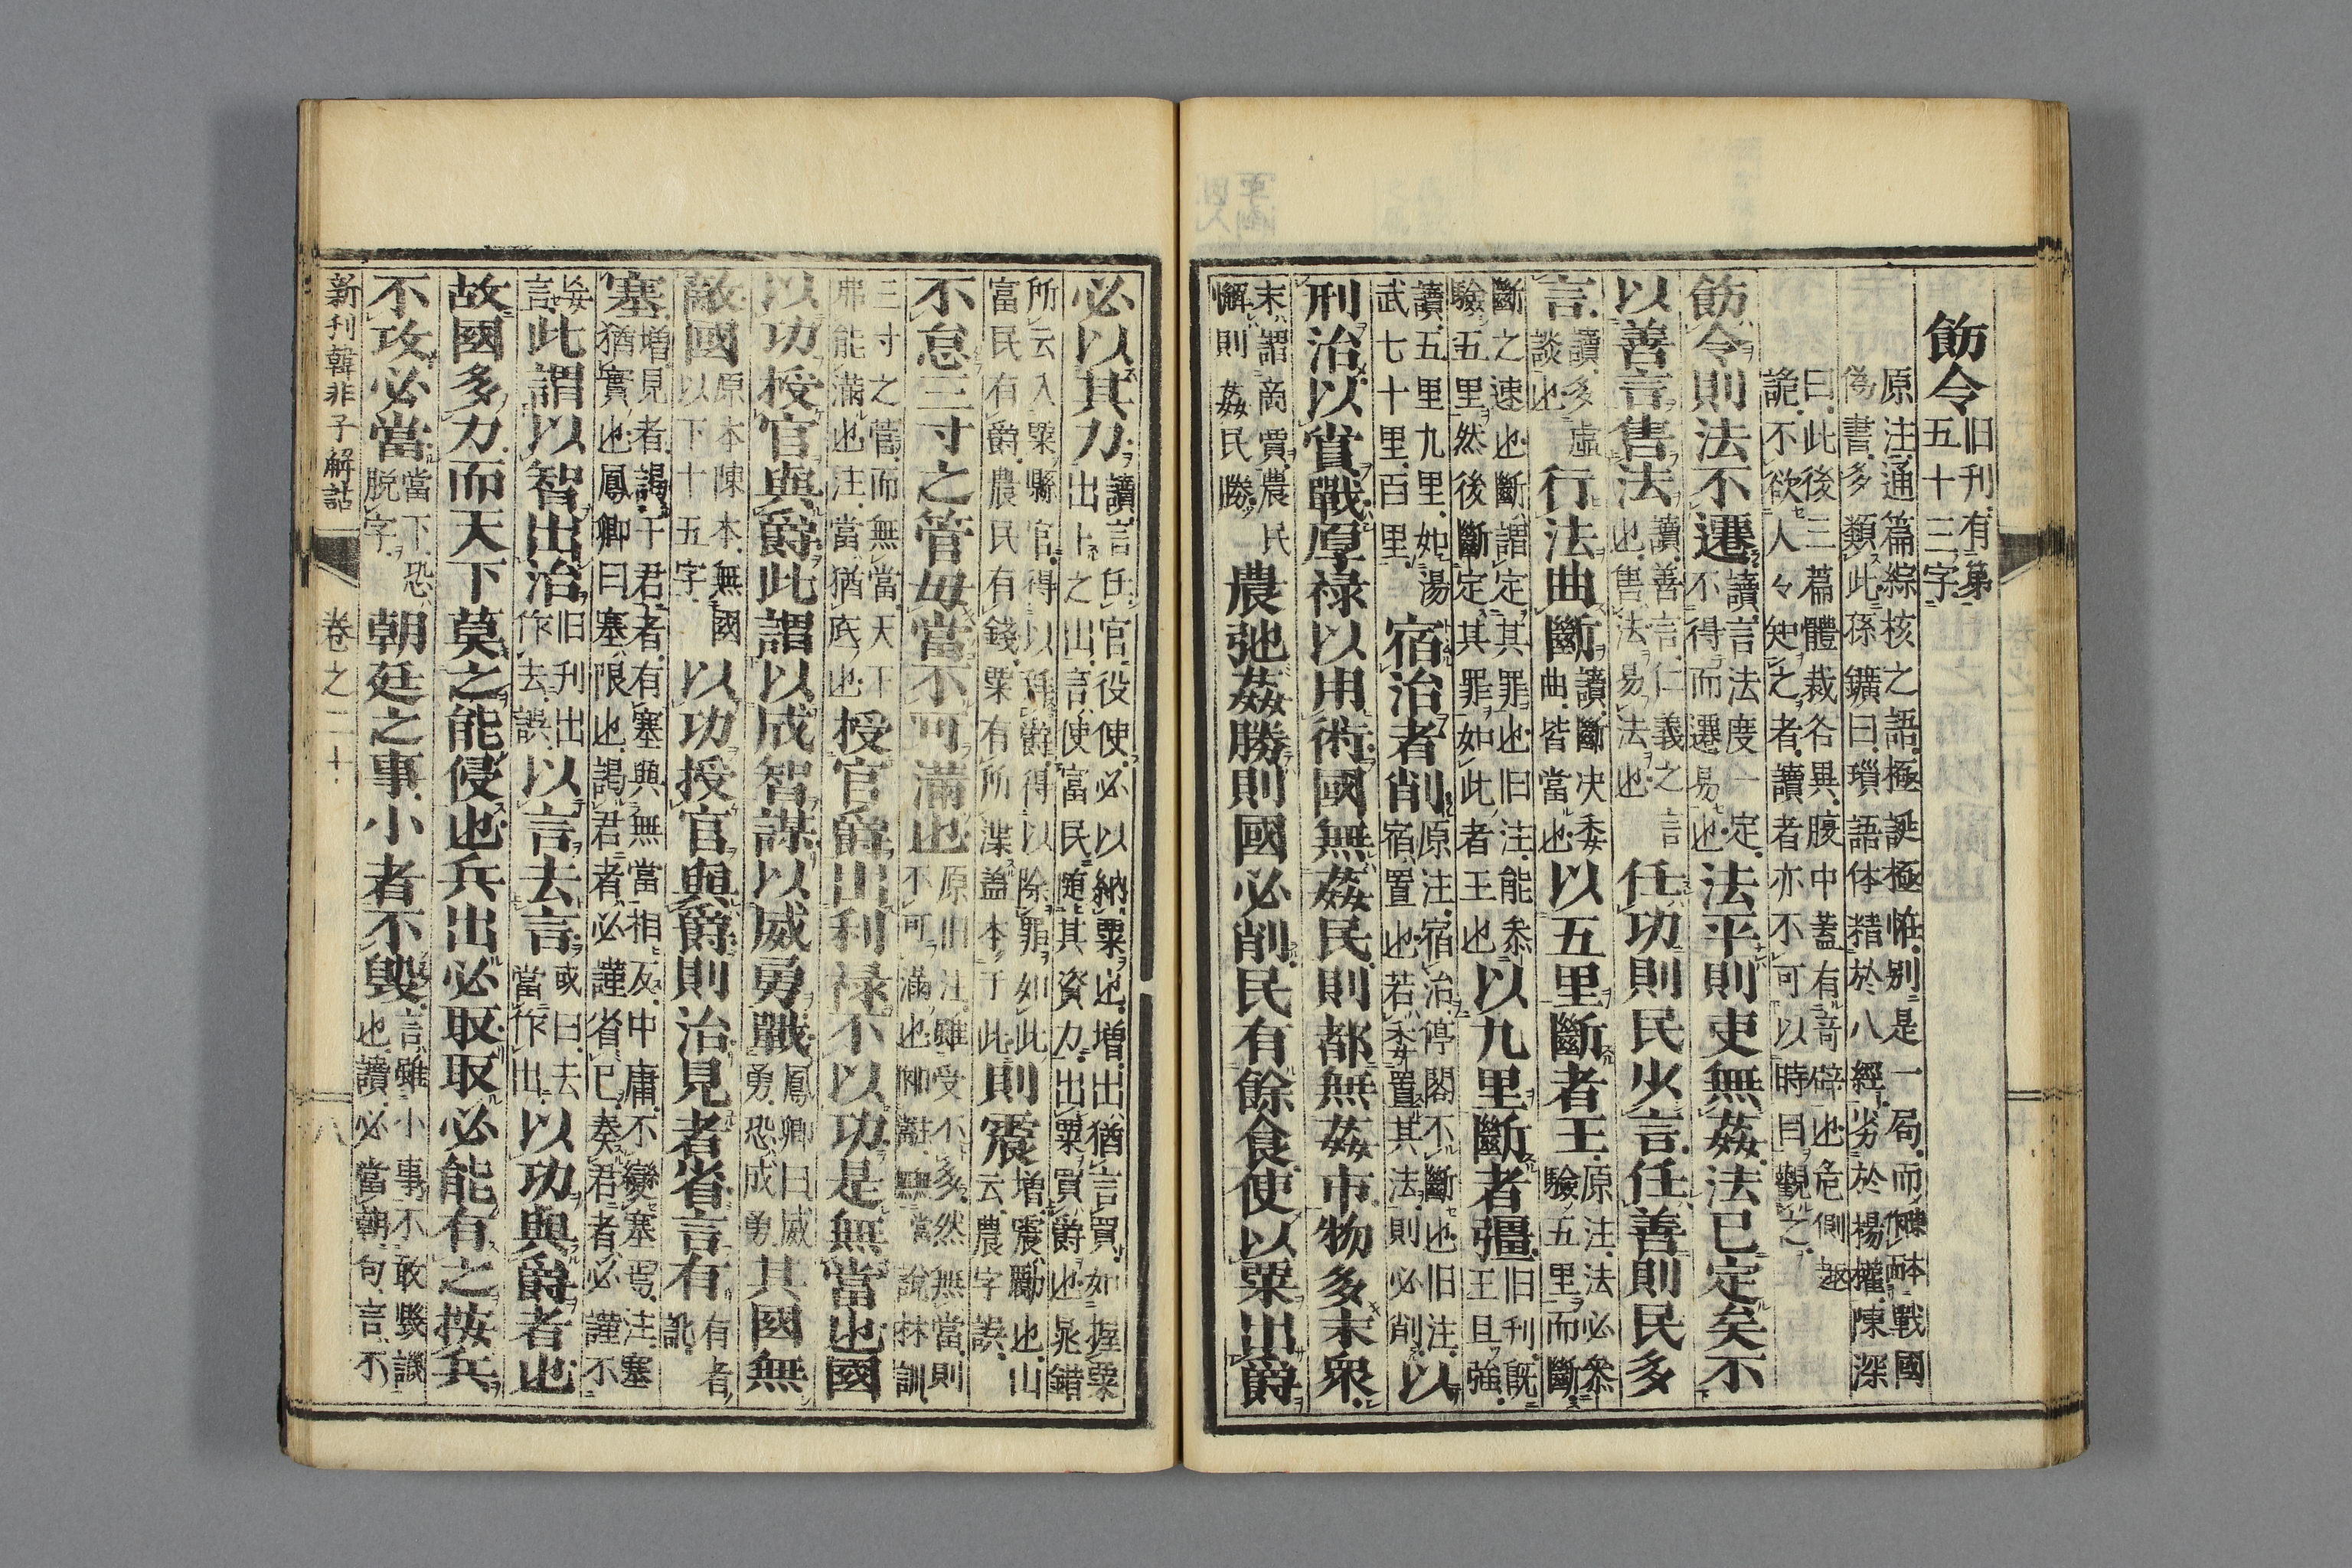 飭令 旧刊有第五十三字
原注通篇綜核之語極誕極恠別是一局而儗
偽書多類此孫鑛曰瑣語体精於八經劣於楊權陳深
曰此後三篇體裁各異腹中蓋有竒僻也危側
詭不欲人々知之者讀者亦不可以時目觀之
飭令則法不遷讀言法度一定不得而遷易也法平則吏無姦法已定矣不
以善言售法讀善言仁義之言也售法易法也任功則民少言任善則民多
言讀多虛談也行法曲斷讀斷决委曲皆當也以五里斷者王原注法必叅驗五里而斷
斷之速也斷謂定其罪也旧注能叅驗五里然後斷定其罪如此者王也以九里斷者彊旧刊既王且強
讀五里九里如湯武七十里百里宿治者削原注宿治停閣不斷也旧注宿置也若委置其法則必削以
刑治以賞戰厚禄以用術國無姦民則都無姦市物多末衆
末謂商賈農民解則姦民勝農弛姦勝則國必削民有餘食使以粟出爵
必以其力讀言任官役使必以納粟也增出猶言買如握粟出卜之出言使富民随其資力出粟買爵也晁錯
所云入粟縣官得以拜爵得以除罪如此富民有爵農民有錢粟有所渫蓋本于此則震增震勵也山云農字誤
不怠三寸之管毋當不可滿也原旧注雖受不多然無當則不可滿也卿難無當說林訓
三寸之管而無當天下弗能滿也注當猶底也授官爵出利禄不以功是無當也國
以功授官與爵此謂以成智謀以威勇戰鳳卿曰威勇恐成勇其國無
敵國原本陳本無國以下十五字以功授官與爵則治見者省言有有者訛
塞增見者謁于君者有塞與無當相反中庸不變塞焉注塞猶實也鳳卿曰塞限也謁君者必謹省已奏君者必謹不
妄言此謂以智出治旧刊出作去誤以言去言或曰去當作出以功與爵者也
故國多力而天下莫之能侵也兵出必取取必能有之按兵
不攻必當當下恐脱字朝廷之事小者不毁言雖小事不敢毁譏也讀必當朝句言不
新刊韓非子解詁 卷之二十 八